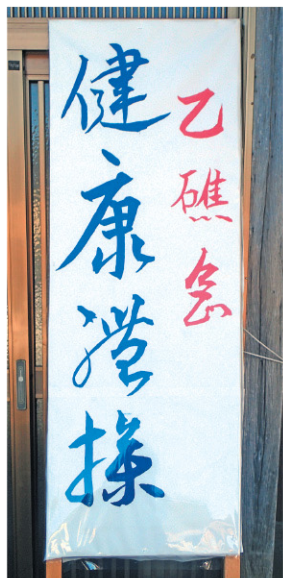 乙礁会
健康操